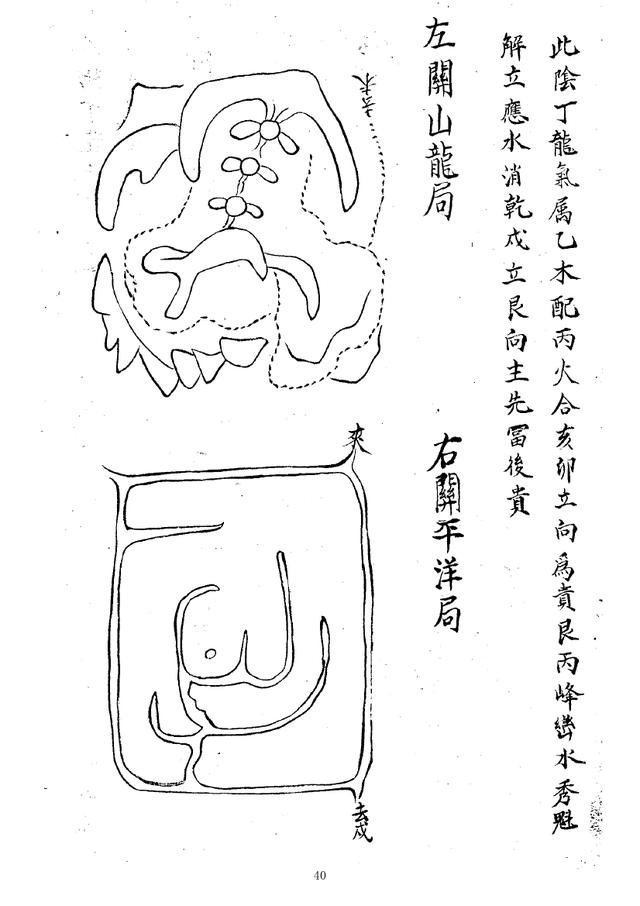 此陰丁龍氣属乙木配丙火合亥卯立向爲貴艮丙峰巒水秀魁
解立應水消乾戍立艮向主先冨後貴
左關山龍局
去水
右關平洋局
來
去戍
40